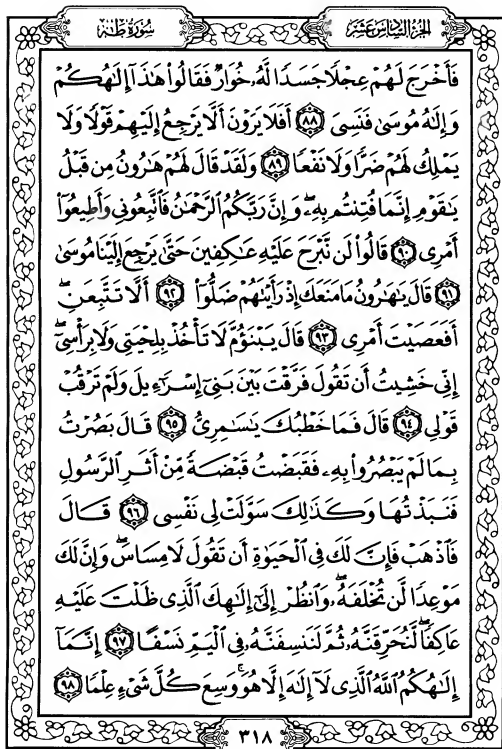 الجزء السادس عشر
سورة طه
فَأَخْرَجَ لَهُمْ عِجْلًا جَسَدًا لَّهُۥ خُوَارٌ فَقَالُوا۟ هَـٰذَآ إِلَـٰهُكُمْ
وَإِلَـٰهُ مُوسَىٰ فَنَسِىَ ٨٨ أَفَلَا يَرَوْنَ أَلَّا يَرْجِعُ إِلَيْهِمْ قَوْلًا وَلَا
يَمْلِكُ لَهُمْ ضَرًّا وَلَا نَفْعًا ٨٩ وَلَقَدْ قَالَ لَهُمْ هَـٰرُونُ مِن قَبْلُ
يَـٰقَوْمِ إِنَّمَا فُتِنتُم بِهِۦ ۖ وَإِنَّ رَبَّكُمُ ٱلرَّحْمَـٰنُ فَٱتَّبِعُونِى وَأَطِيعُوٓا۟
أَمْرِى ٩٠ قَالُوا۟ لَن نَّبْرَحَ عَلَيْهِ عَـٰكِفِينَ حَتَّىٰ يَرْجِعَ إِلَيْنَا مُوسَىٰ
٩١ قَالَ يَـٰهَـٰرُونُ مَا مَنَعَكَ إِذْ رَأَيْتَهُمْ ضَلُّوٓا۟ ٩٢ أَلَّا تَتَّبِعَنِ ۖ
أَفَعَصَيْتَ أَمْرِى ٩٣ قَالَ يَبْنَؤُمَّ لَا تَأْخُذْ بِلِحْيَتِى وَلَا بِرَأْسِىٓ ۖ
إِنِّى خَشِيتُ أَن تَقُولَ فَرَّقْتَ بَيْنَ بَنِىٓ إِسْرَٰٓءِيلَ وَلَمْ تَرْقُبْ
قَوْلِى ٩٤ قَالَ فَمَا خَطْبُكَ يَـٰسَـٰمِرِىُّ ٩٥ قَالَ بَصُرْتُ
بِمَا لَمْ يَبْصُرُوا۟ بِهِۦ فَقَبَضْتُ قَبْضَةً مِّنْ أَثَرِ ٱلرَّسُولِ
فَنَبَذْتُهَا وَكَذَٰلِكَ سَوَّلَتْ لِى نَفْسِى ٩٦ قَالَ
فَٱذْهَبْ فَإِنَّ لَكَ فِى ٱلْحَيَوٰةِ أَن تَقُولَ لَا مِسَاسَ ۖ وَإِنَّ لَكَ
مَوْعِدًا لَّن تُخْلَفَهُۥ ۖ وَٱنظُرْ إِلَىٰٓ إِلَـٰهِكَ ٱلَّذِى ظَلْتَ عَلَيْهِ
عَاكِفًا ۖ لَّنُحَرِّقَنَّهُۥ ثُمَّ لَنَنسِفَنَّهُۥ فِى ٱلْيَمِّ نَسْفًا ٩٧ إِنَّمَآ
إِلَـٰهُكُمُ ٱللَّهُ ٱلَّذِى لَآ إِلَـٰهَ إِلَّا هُوَ ۚ وَسِعَ كُلَّ شَىْءٍ عِلْمًا ٩٨
٣١٨